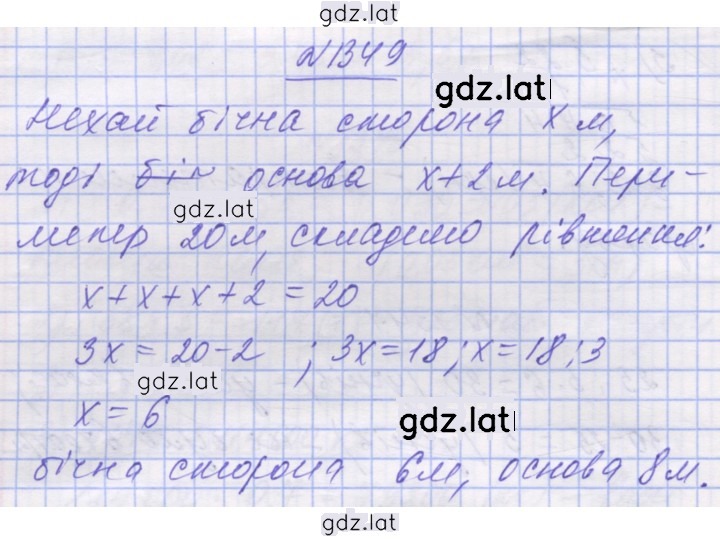 gdz.lat
№1349
gdz.lat
Нехай бічна сторона x м,
тоді біч основа x+2м. Пери-
gdz.lat
метр 20м, складемо рівняння:
x+x+x+2=20
3x=20-2 ; 3x=18; x=18:3
gdz.lat
x=6
gdz.lat
бічна сторона 6м, основа 8м.
gdz.lat